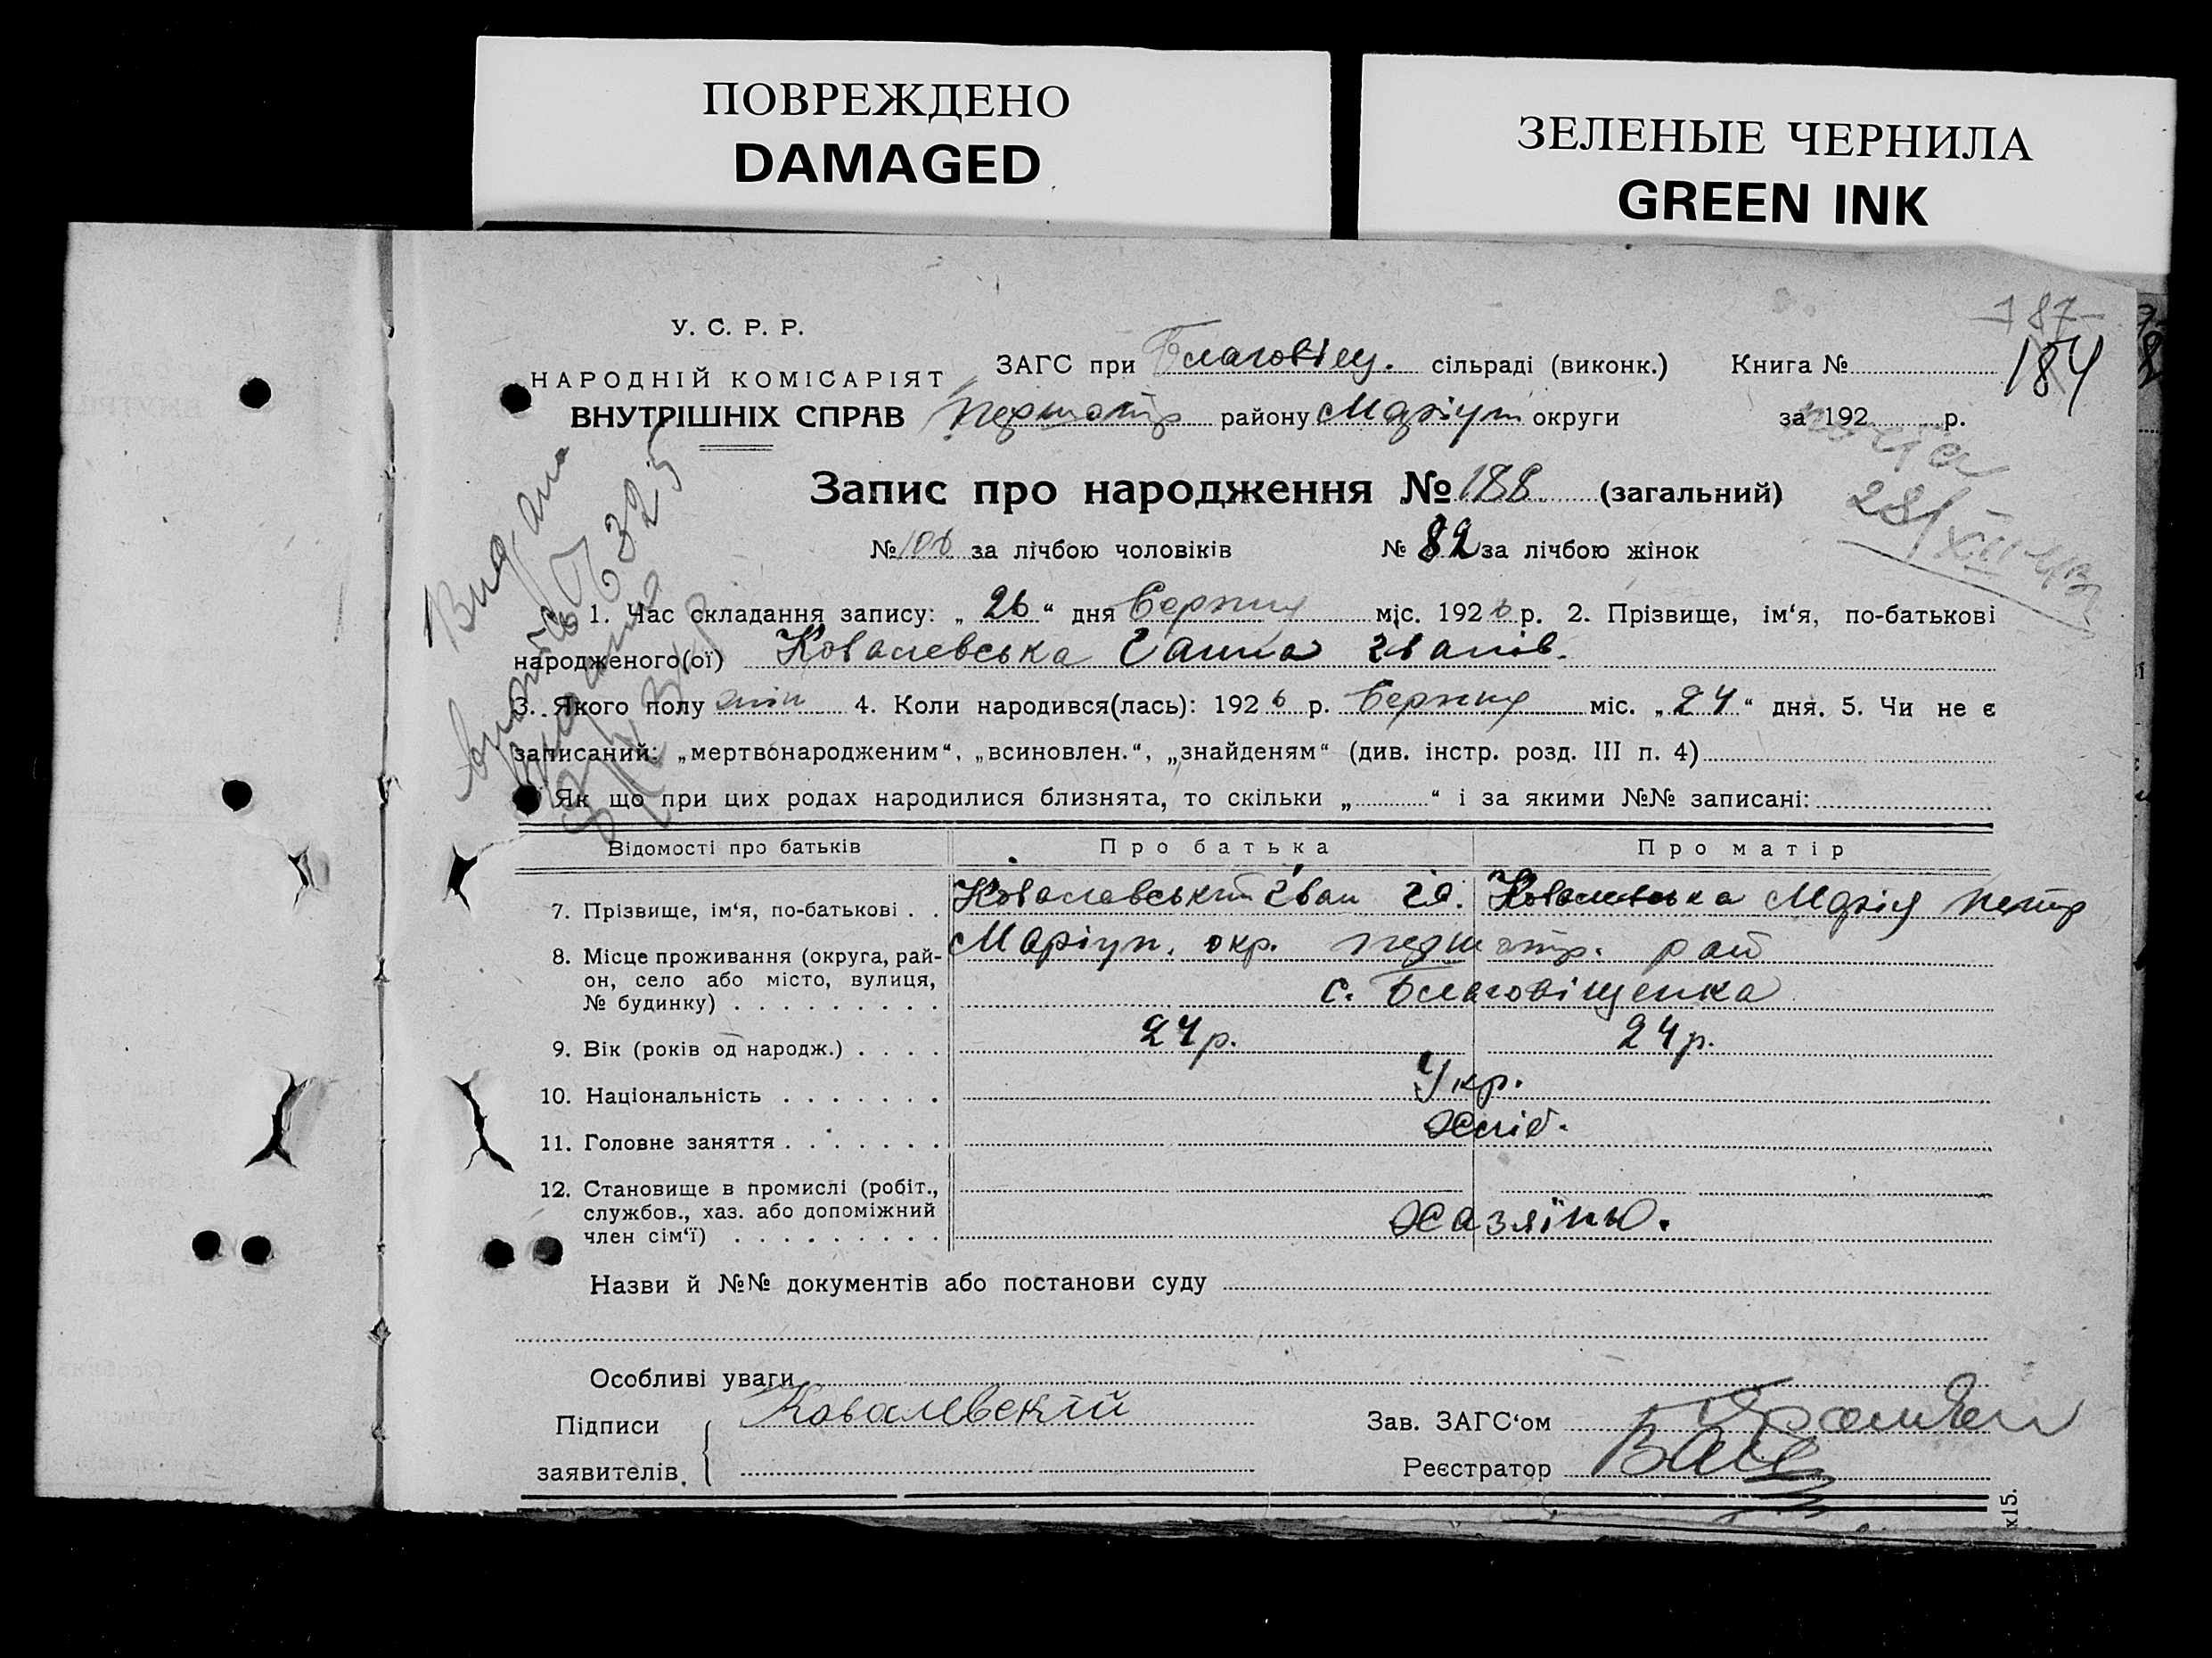 ПОВРЕЖДЕНО
DAMAGED
ЗЕЛЕНЫЕ ЧЕРНИЛА
GREEN INK
187
184
У. С. Р. Р.
НАРОДНІЙ КОМІСАРІЯТ
ВНУТРІШНІХ СПРАВ
ЗАГС при Благовіщ. сільраді (виконк.) Книга №
Першотр району Маріуп округи за 192 р.
Запис про народження № 188 (загальний)
№ 106 за лічбою чоловіків № 82 за лічбою жінок
28/XII
Видана
1. Час складання запису: „ 26 “ дня Серпня міс. 192 6 р. 2. Прізвище, ім‘я, по-батькові
народженого(ої) Ковалевська Ганна Іванів.
3. Якого полу жін 4. Коли народився(лась): 192 6 р. Серпня міс. „ 24 “ дня. 5. Чи не є
записаний: „мертвонародженим“, „всиновлен.“, „знайденям“ (див. інстр. розд. III п. 4)
Як що при цих родах народилися близнята, то скільки „ “ і за якими №№ записані:
Відомості про батьків Про батька Про матір
7. Прізвище, ім‘я, по-батькові . . Ковалевський Іван Ковалевська Марія Петр
8. Місце проживання (округа, рай- Маріуп. окр. першотр. рай
он, село або місто, вулиця,
№ будинку) . . . . . . . . . с. Благовіщенка
9. Вік (років од народж.) . . . . 24 р. 24 р.
10. Національність . . . . . . . Укр.
11. Головне заняття . . . . . . . Хліб.
12. Становище в промислі (робіт.,
службов., хаз. або допоміжний
член сім‘ї) . . . . . . . . . Хазяїни.
Назви й №№ документів або постанови суду
Особливі уваги
Підписи Ковалевскій Зав. ЗАГС‘ом
заявителів. Реєстратор
х15.